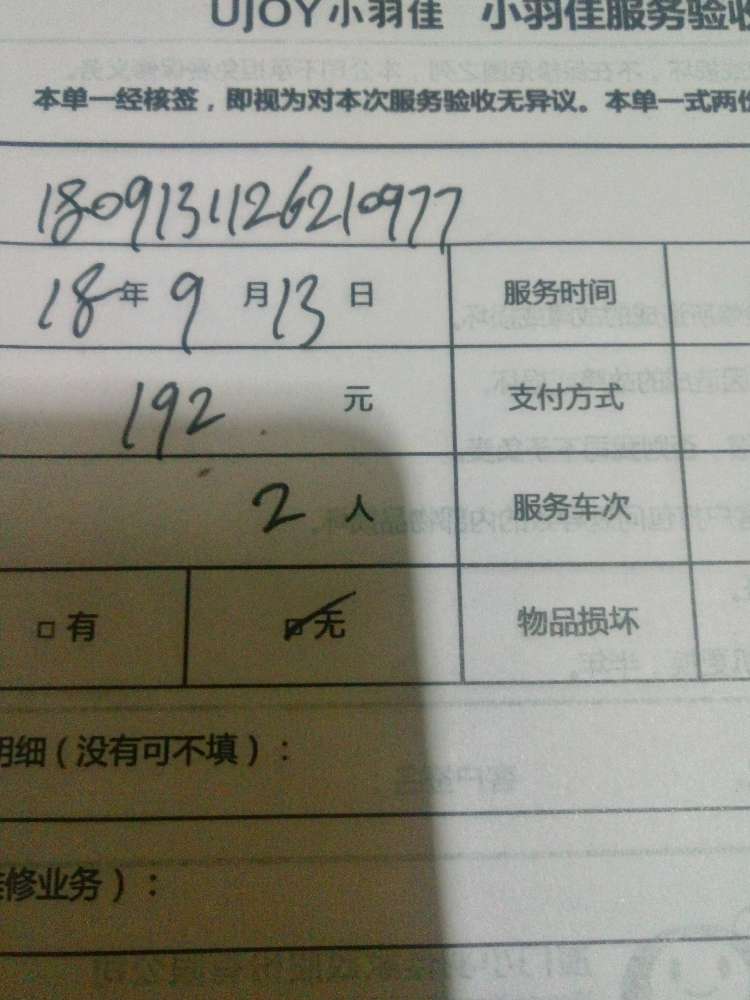 UJOY小羽佳 小羽佳服务验收
本单一经核签，即视为对本次服务验收无异议。本单一式两份
1809131126210977
18年9月13日 服务时间
192元 支付方式
2人 服务车次
□有 □无 物品损坏
明细（没有可不填）：
修业务）：